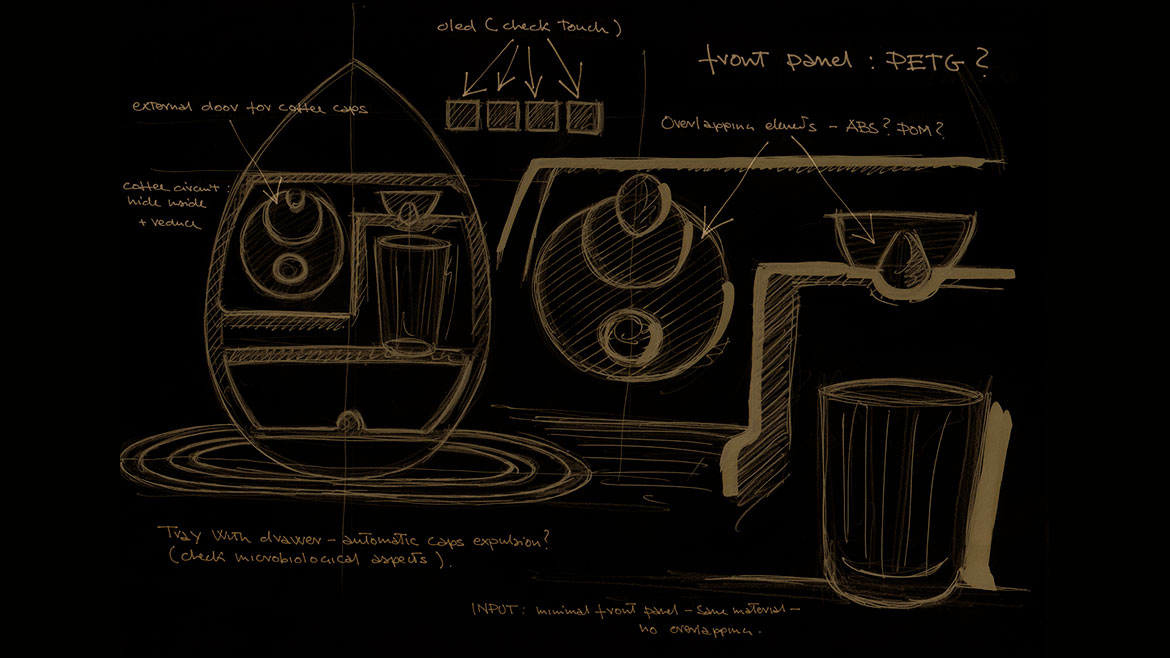 oled (check touch)
front panel : PETG ?
external door for coffee caps
Overlapping elements - ABS? POM?
coffee circuit :
hide inside
+ reduce
Tray with drawer - automatic caps expulsion?
(check microbiological aspects).
INPUT: minimal front panel - same material -
no overlapping.